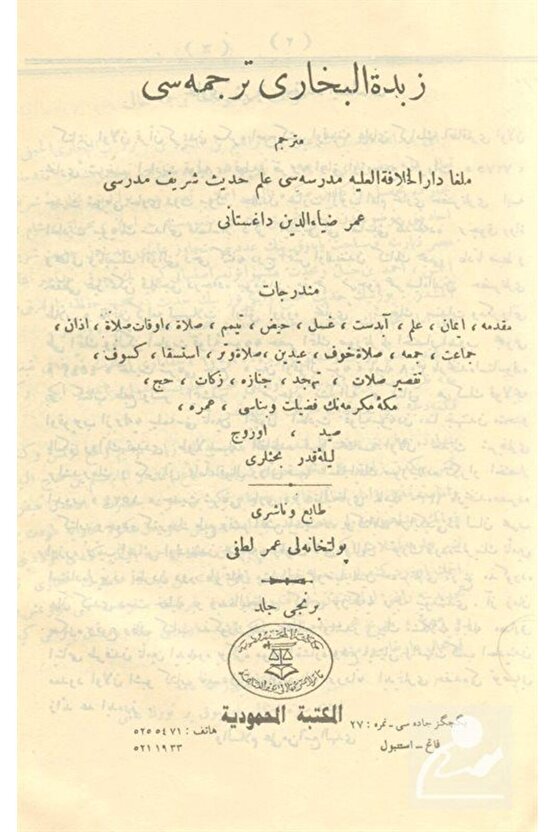 زبدة البخاری ترجمه سی
مترجم
ملغا دار الخلافة العلیه مدرسه سی علم حدیث شریف مدرسی
عمر ضیاءالدین داغستانی
مندرجات
مقدمه ، ایمان ، علم ، آبدست ، غسل ، حیض ، تیمم ، صلاة ، اوقات صلاة ، اذان ،
جماعت ، جمعه ، صلاة خوف ، عیدین ، صلاة وتر ، استسقا ، کسوف ،
تقصیر صلات ، تهجد ، جنازه ، زکات ، حج ،
مکهٔ مکرمه نك فضیلت وبناسی ، عمره ،
صید ، اوروج
لیلهٔ قدر بحثلری
طابع و ناشری
بولتخانه لی عمر لطفی
برنجی جلد
المكتبة المحمودية
یگچگز جاده سی - نمره : ٢٧ هاتف : ٥٢٥ ٥٤ ٧١
فاتح - استنبول ٥٢١ ١٩ ٣٣